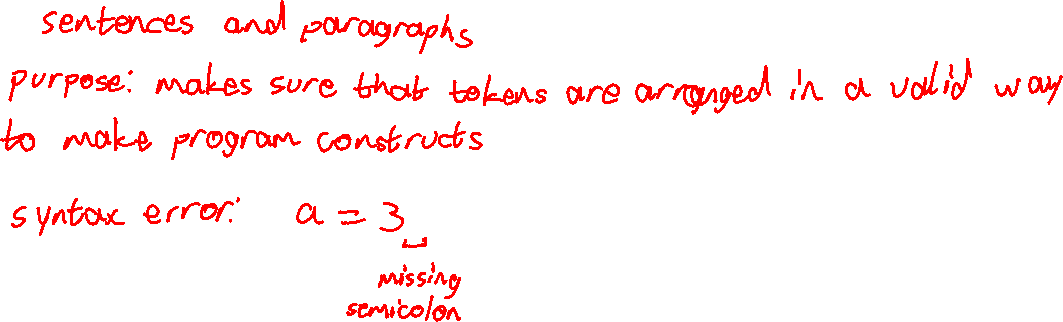 sentences and paragraphs
purpose: makes sure that tokens are arranged in a valid way
to make program constructs
syntax error: a = 3
missing
semicolon